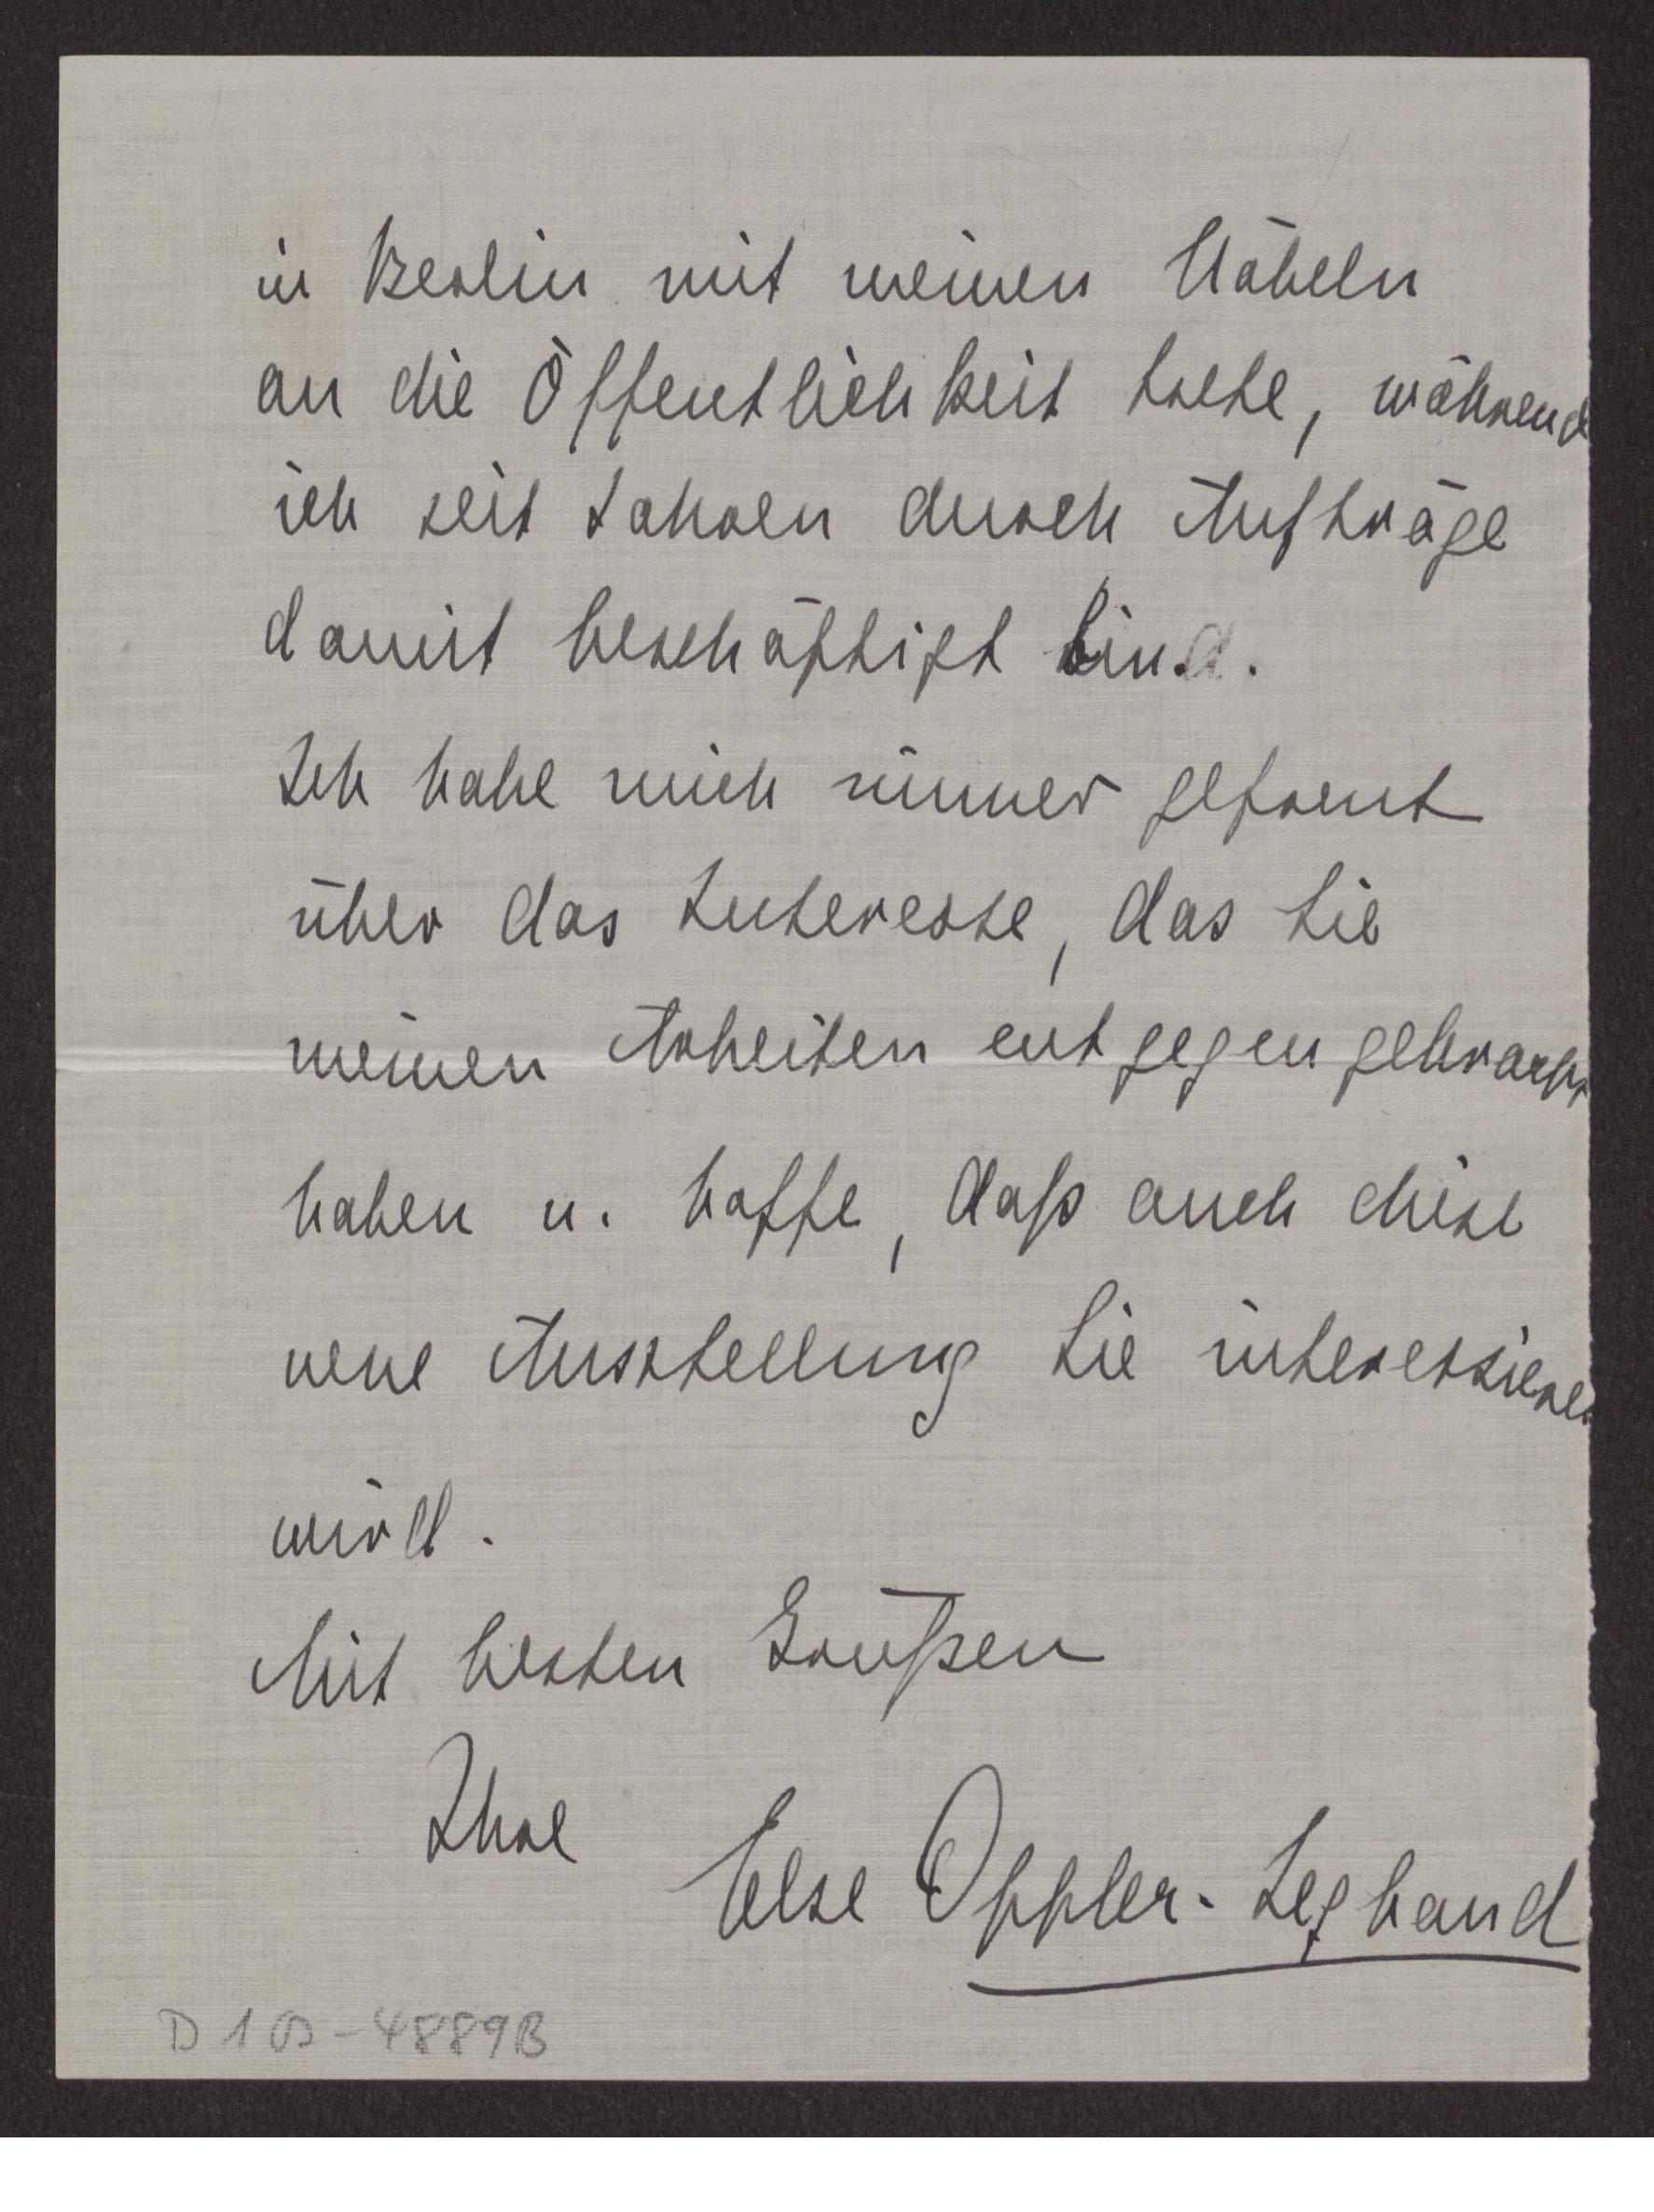 in Berlin mit meinen Möbeln
an die Öffentlichkeit trete, während
ich seit Jahren durch Aufträge
damit beschäftigt bin.
Ich habe mich immer gefreut
über das Interesse, das Sie
meinen Arbeiten entgegengebracht
haben u. hoffe, daß auch diese
neue Ausstellung Sie interessieren
wird.
Mit besten Grüßen
Ihre Else Oppler-Legband
D 10-4889B